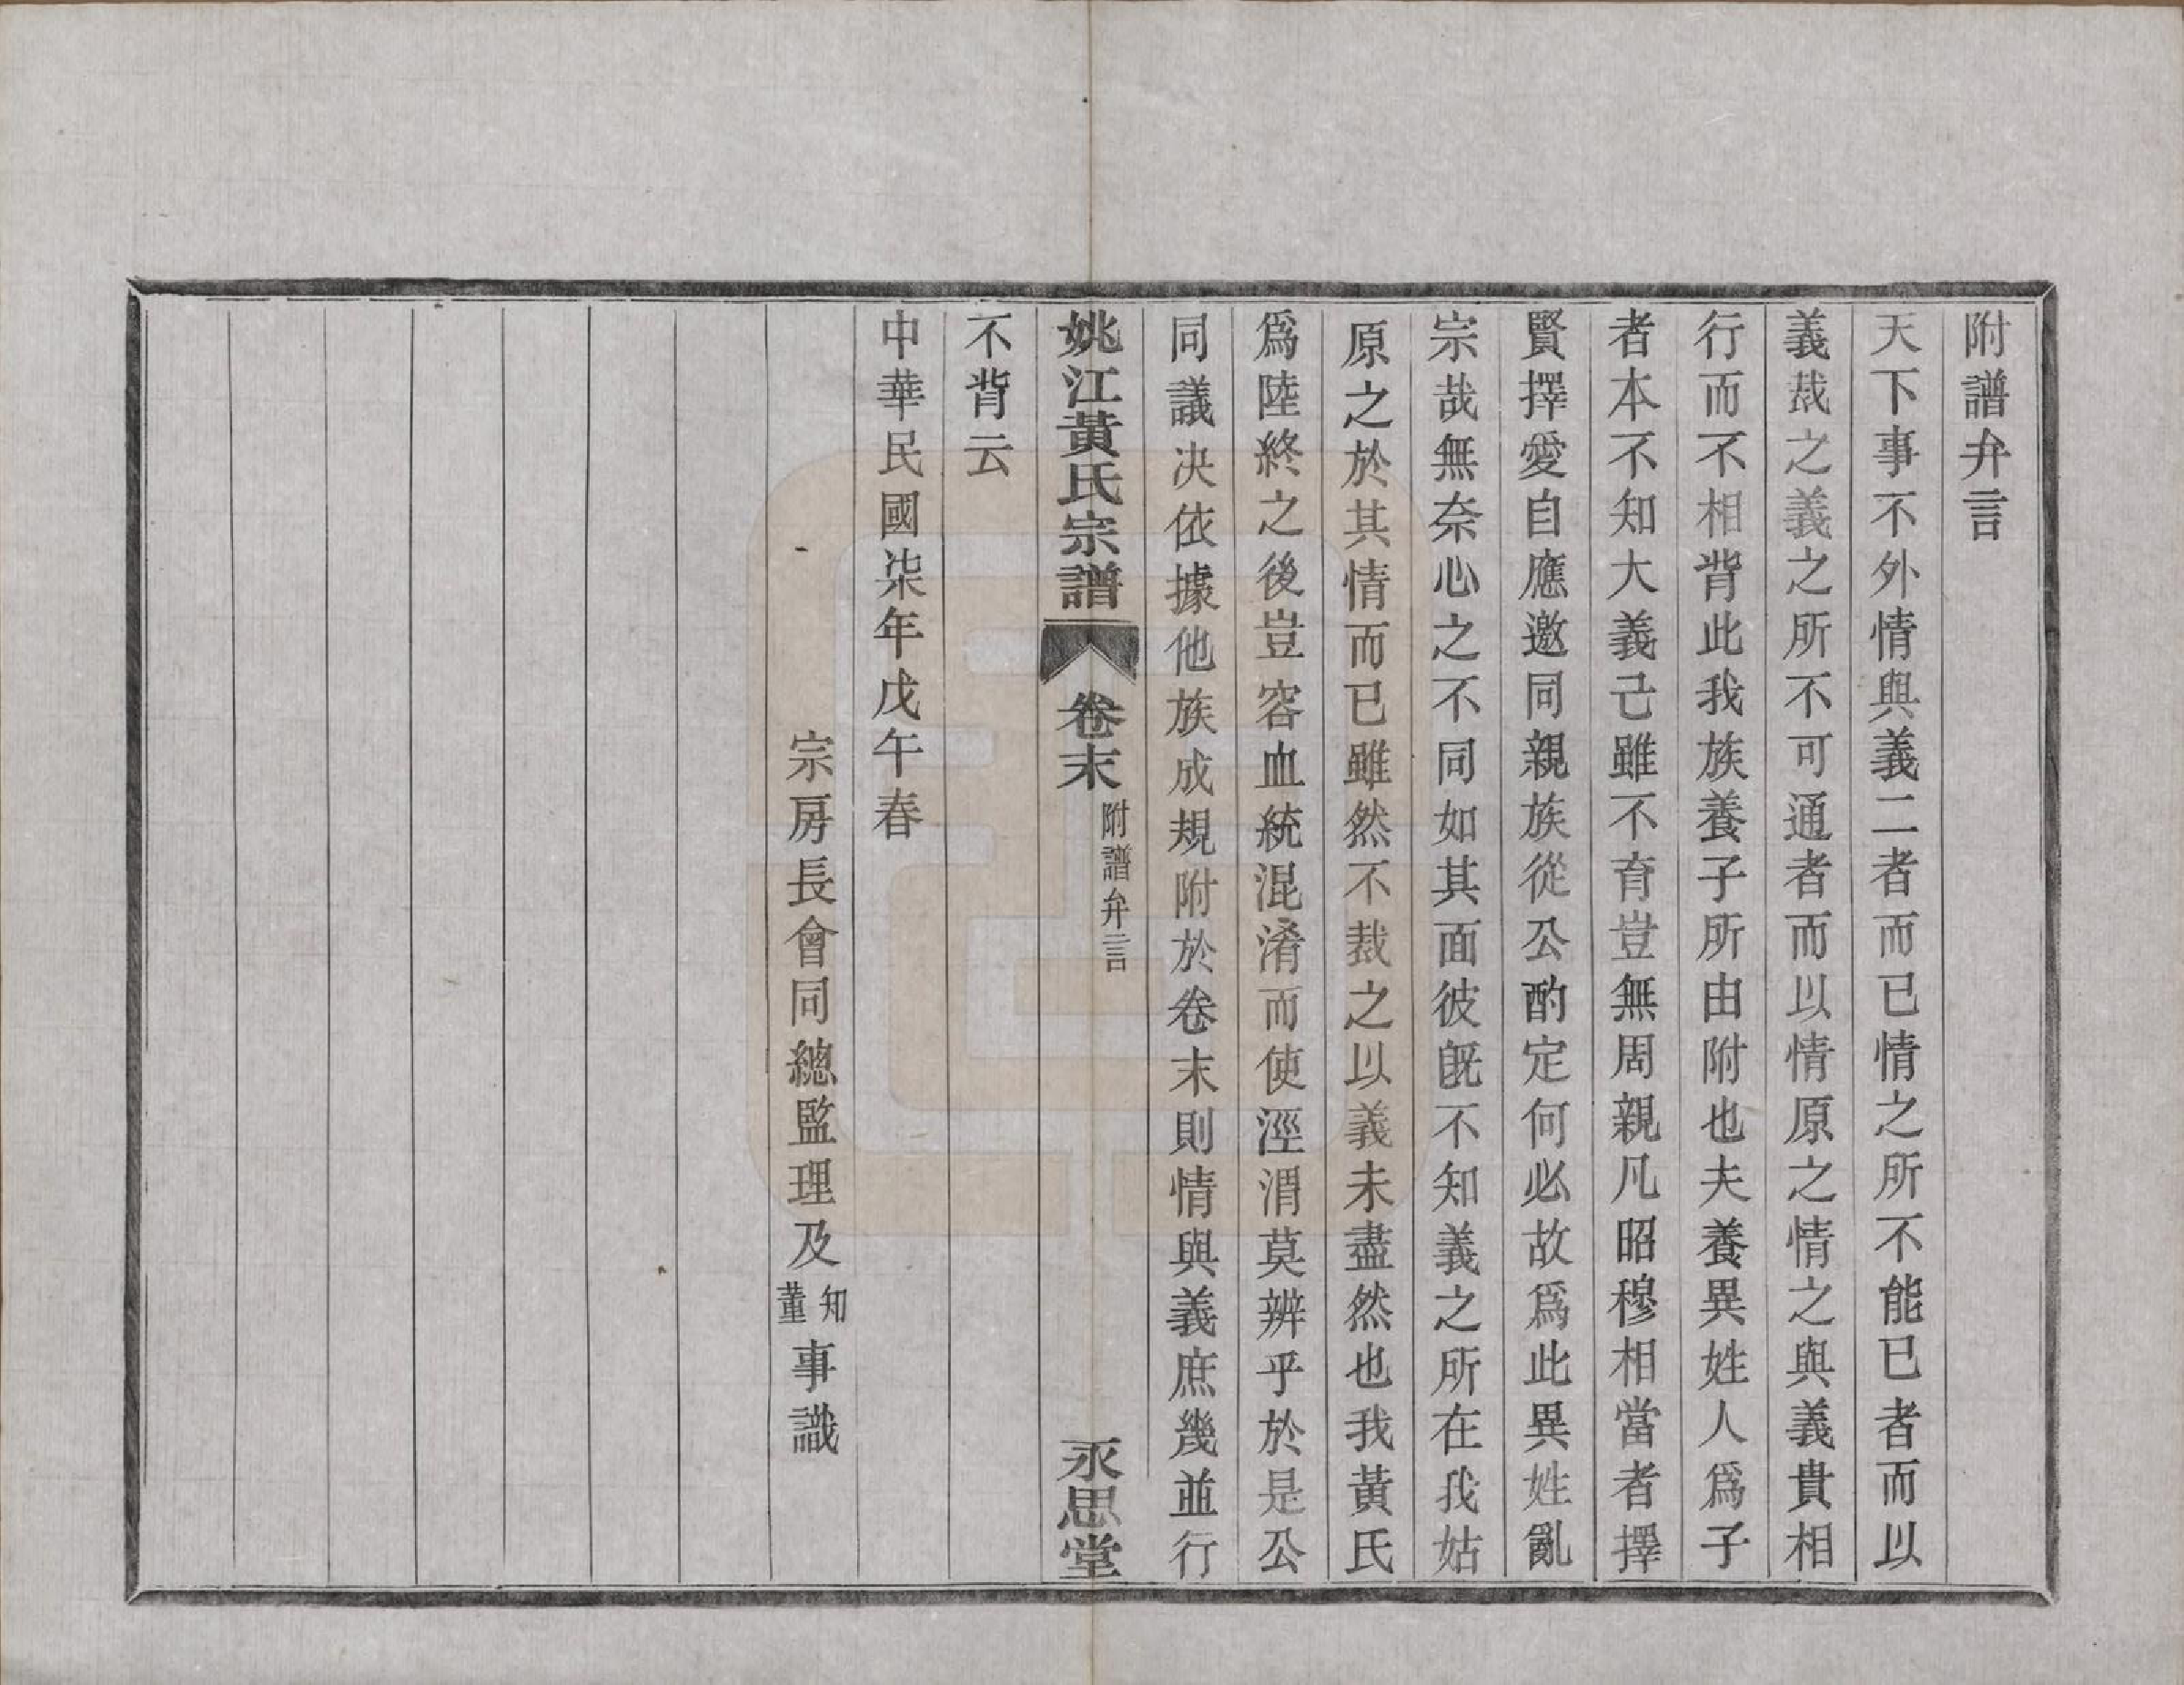 附譜弁言
天下事不外情與義二者而已情之所不能已者而以
義裁之義之所不可通者而以情原之情之與義貴相
行而不相背此我族養子所由附也夫養異姓人爲子
者本不知大義己雖不育豈無周親凡昭穆相當者擇
賢擇愛自應邀同親族從公酌定何必故爲此異姓亂
宗哉無奈心之不同如其面彼旣不知義之所在我姑
原之於其情而已雖然不裁之以義未盡然也我黃氏
爲陸終之後豈容血統混淆而使涇渭莫辨乎於是公
同議决依據他族成規附於卷末則情與義庶幾並行
姚江黃氏宗譜 卷末 附譜弁言 永思堂
不背云
中華民國柒年戊午春
宗房長會同總監理及知董事識